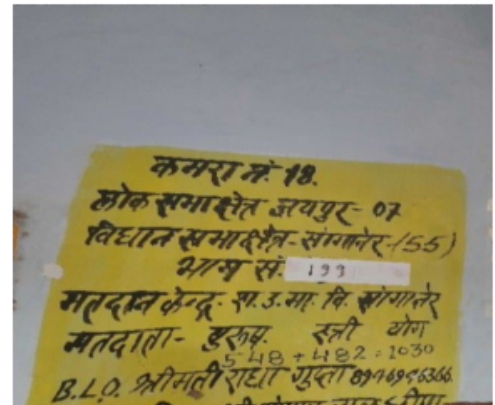 कमरा नं. 18.
लोक सभा क्षेत्र जयपुर - 07
विधान सभा क्षेत्र - सांगानेर - (55)
भाग सं. 199
मतदान केन्द्र - रा. उ. मा. वि. सांगानेर
मतदाता - पुरूष. स्त्री योग
548 + 482 = 1030
B.L.O. श्रीमती राधा गुप्ता